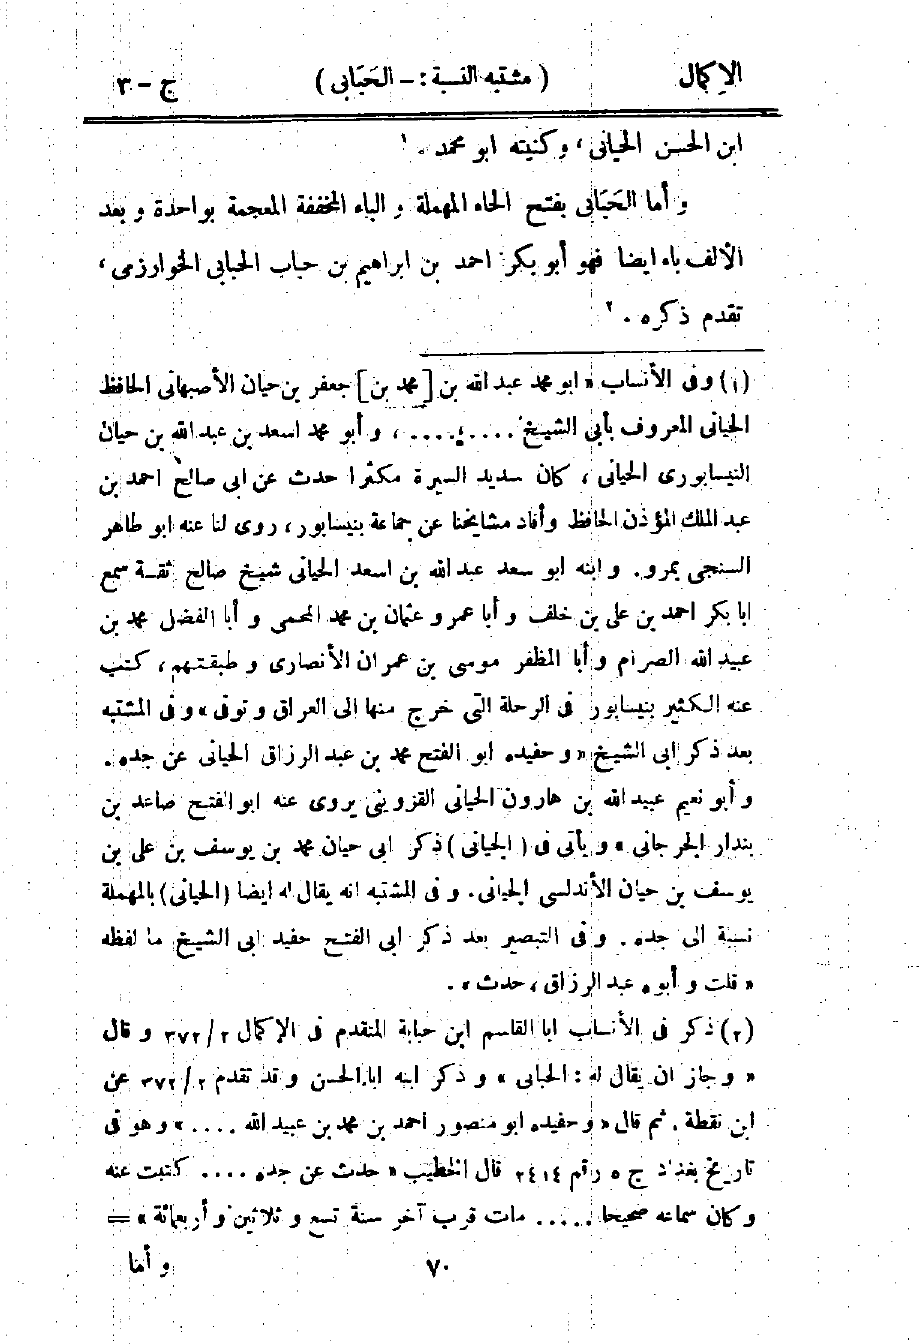 الإكمال ( مشتبه النسبة : – الحَبَابى ) ج – ٣
ابن الحسن الحيانى ، وكنيته ابو محمد . ١
و أما الحَبَابى بفتح الحاء المهملة و الباء المخففة المعجمة بواحدة و بعد
الألف باء ايضا فهو أبو بكر احمد بن ابراهيم بن حباب الحبابى الخوارزمى ،
تقدم ذكره . ٢
(١) وفى الأنساب « ابو محمد عبد الله بن [محمد بن] جعفر بن حيان الأصبهانى الحافظ
الحيانى المعروف بأبى الشيخ . . . . ، . . . . ، و أبو محمد اسعد بن عبد الله بن حيان
النيسابورى الحيانى ، كان سديد السيرة مكثرا حدث عن ابى صالح احمد بن
عبد الملك المؤذن الحافظ وأفاد مشايخنا عن جماعة بنيسابور ، روى لنا عنه ابو طاهر
السنجى بمرو . و ابنه ابو سعد عبد الله بن اسعد الحيانى شيخ صالح ثقة سمع
ابا بكر احمد بن على بن خلف و أبا عمرو عثمان بن محمد المحمى و أبا الفضل محمد بن
عبيد الله الصرام و أبا المظفر موسى بن عمران الأنصارى و طبقتهم ، كتب
عنه الكثير بنيسابور فى الرحلة التى خرج منها الى العراق و توفى » و فى المشتبه
بعد ذكر ابى الشيخ « و حفيده ابو الفتح محمد بن عبد الرزاق الحيانى عن جده .
و أبو نعيم عبيد الله بن هارون الحيانى القزوينى يروى عنه ابو الفتح صاعد بن
بندار الجرجانى » و يأتى فى ( الجيانى ) ذكر ابى حيان محمد بن يوسف بن على بن
يوسف بن حيان الأندلسى الجيانى . و فى المشتبه انه يقال له ايضا (الحيانى) بالمهملة
نسبة الى جده . و فى التبصير بعد ذكر ابى الفتح حفيد ابى الشيخ ما لفظه
« قلت و أبوه عبد الرزاق ، حدث » .
(٢) ذكر فى الأنساب ابا القاسم ابن حبابة المتقدم فى الإكمال ٢/ ٣٧٢ و قال
« و جاز ان يقال له : الحبابى » و ذكر ابنه ابا الحسن و قد تقدم ٢/ ٣٧٢ عن
ابن نقطة . ثم قال « و حفيده ابو منصور احمد بن محمد بن عبيد الله . . . . » و هو فى
تاريخ بغداد ج ٥ رقم ٢٤١٤ قال الخطيب « حدث عن جده . . . . كتبت عنه
و كان سماعه صحيحا . . . . . مات قرب آخر سنة تسع و ثلاثين و أربعمائة » =
٧٠ و أما